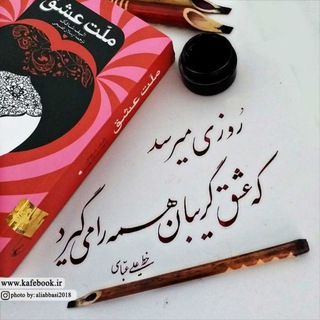 ملت عشق
ملت عشق
روزی میرسد
که عشق گریبان همه را می گیرد
خط علی عباسی
www.kafebook.ir
photo by: aliabbasi2018